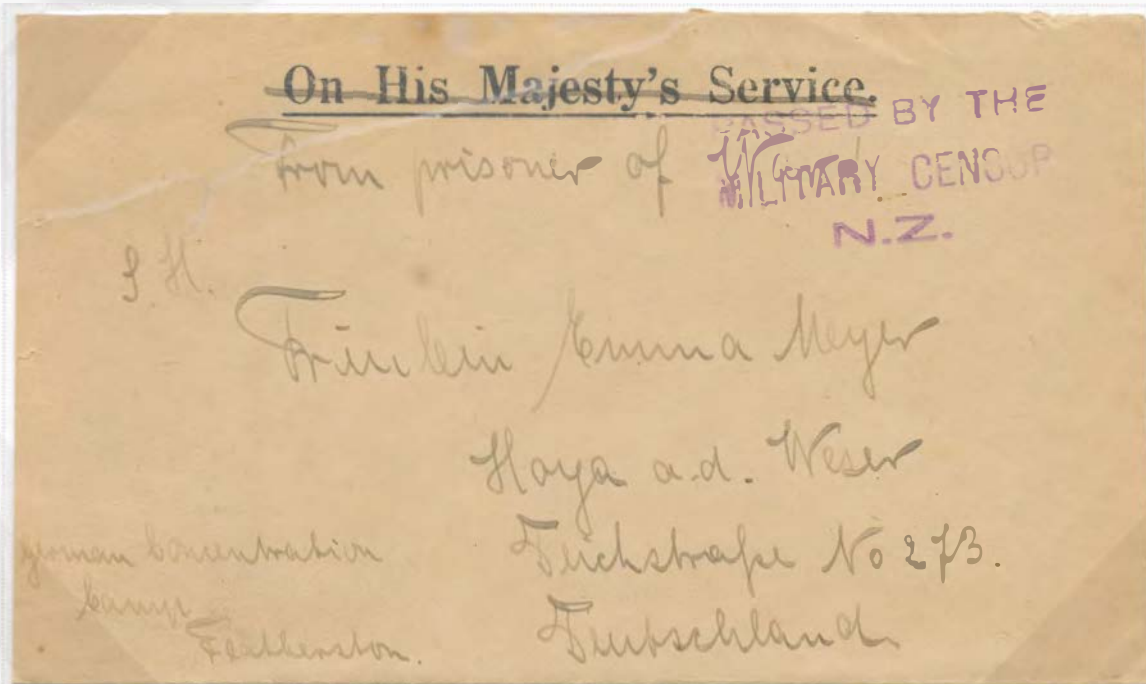 On His Majesty's Service.
PASSED BY THE
MILITARY CENSOR
N.Z.
From prisoner of War
S. H.
Fräulein Emma Meyer
Hoya a.d. Weser
Deichstraße No 273.
Deutschland
German Concentration
Camp
Featherston.